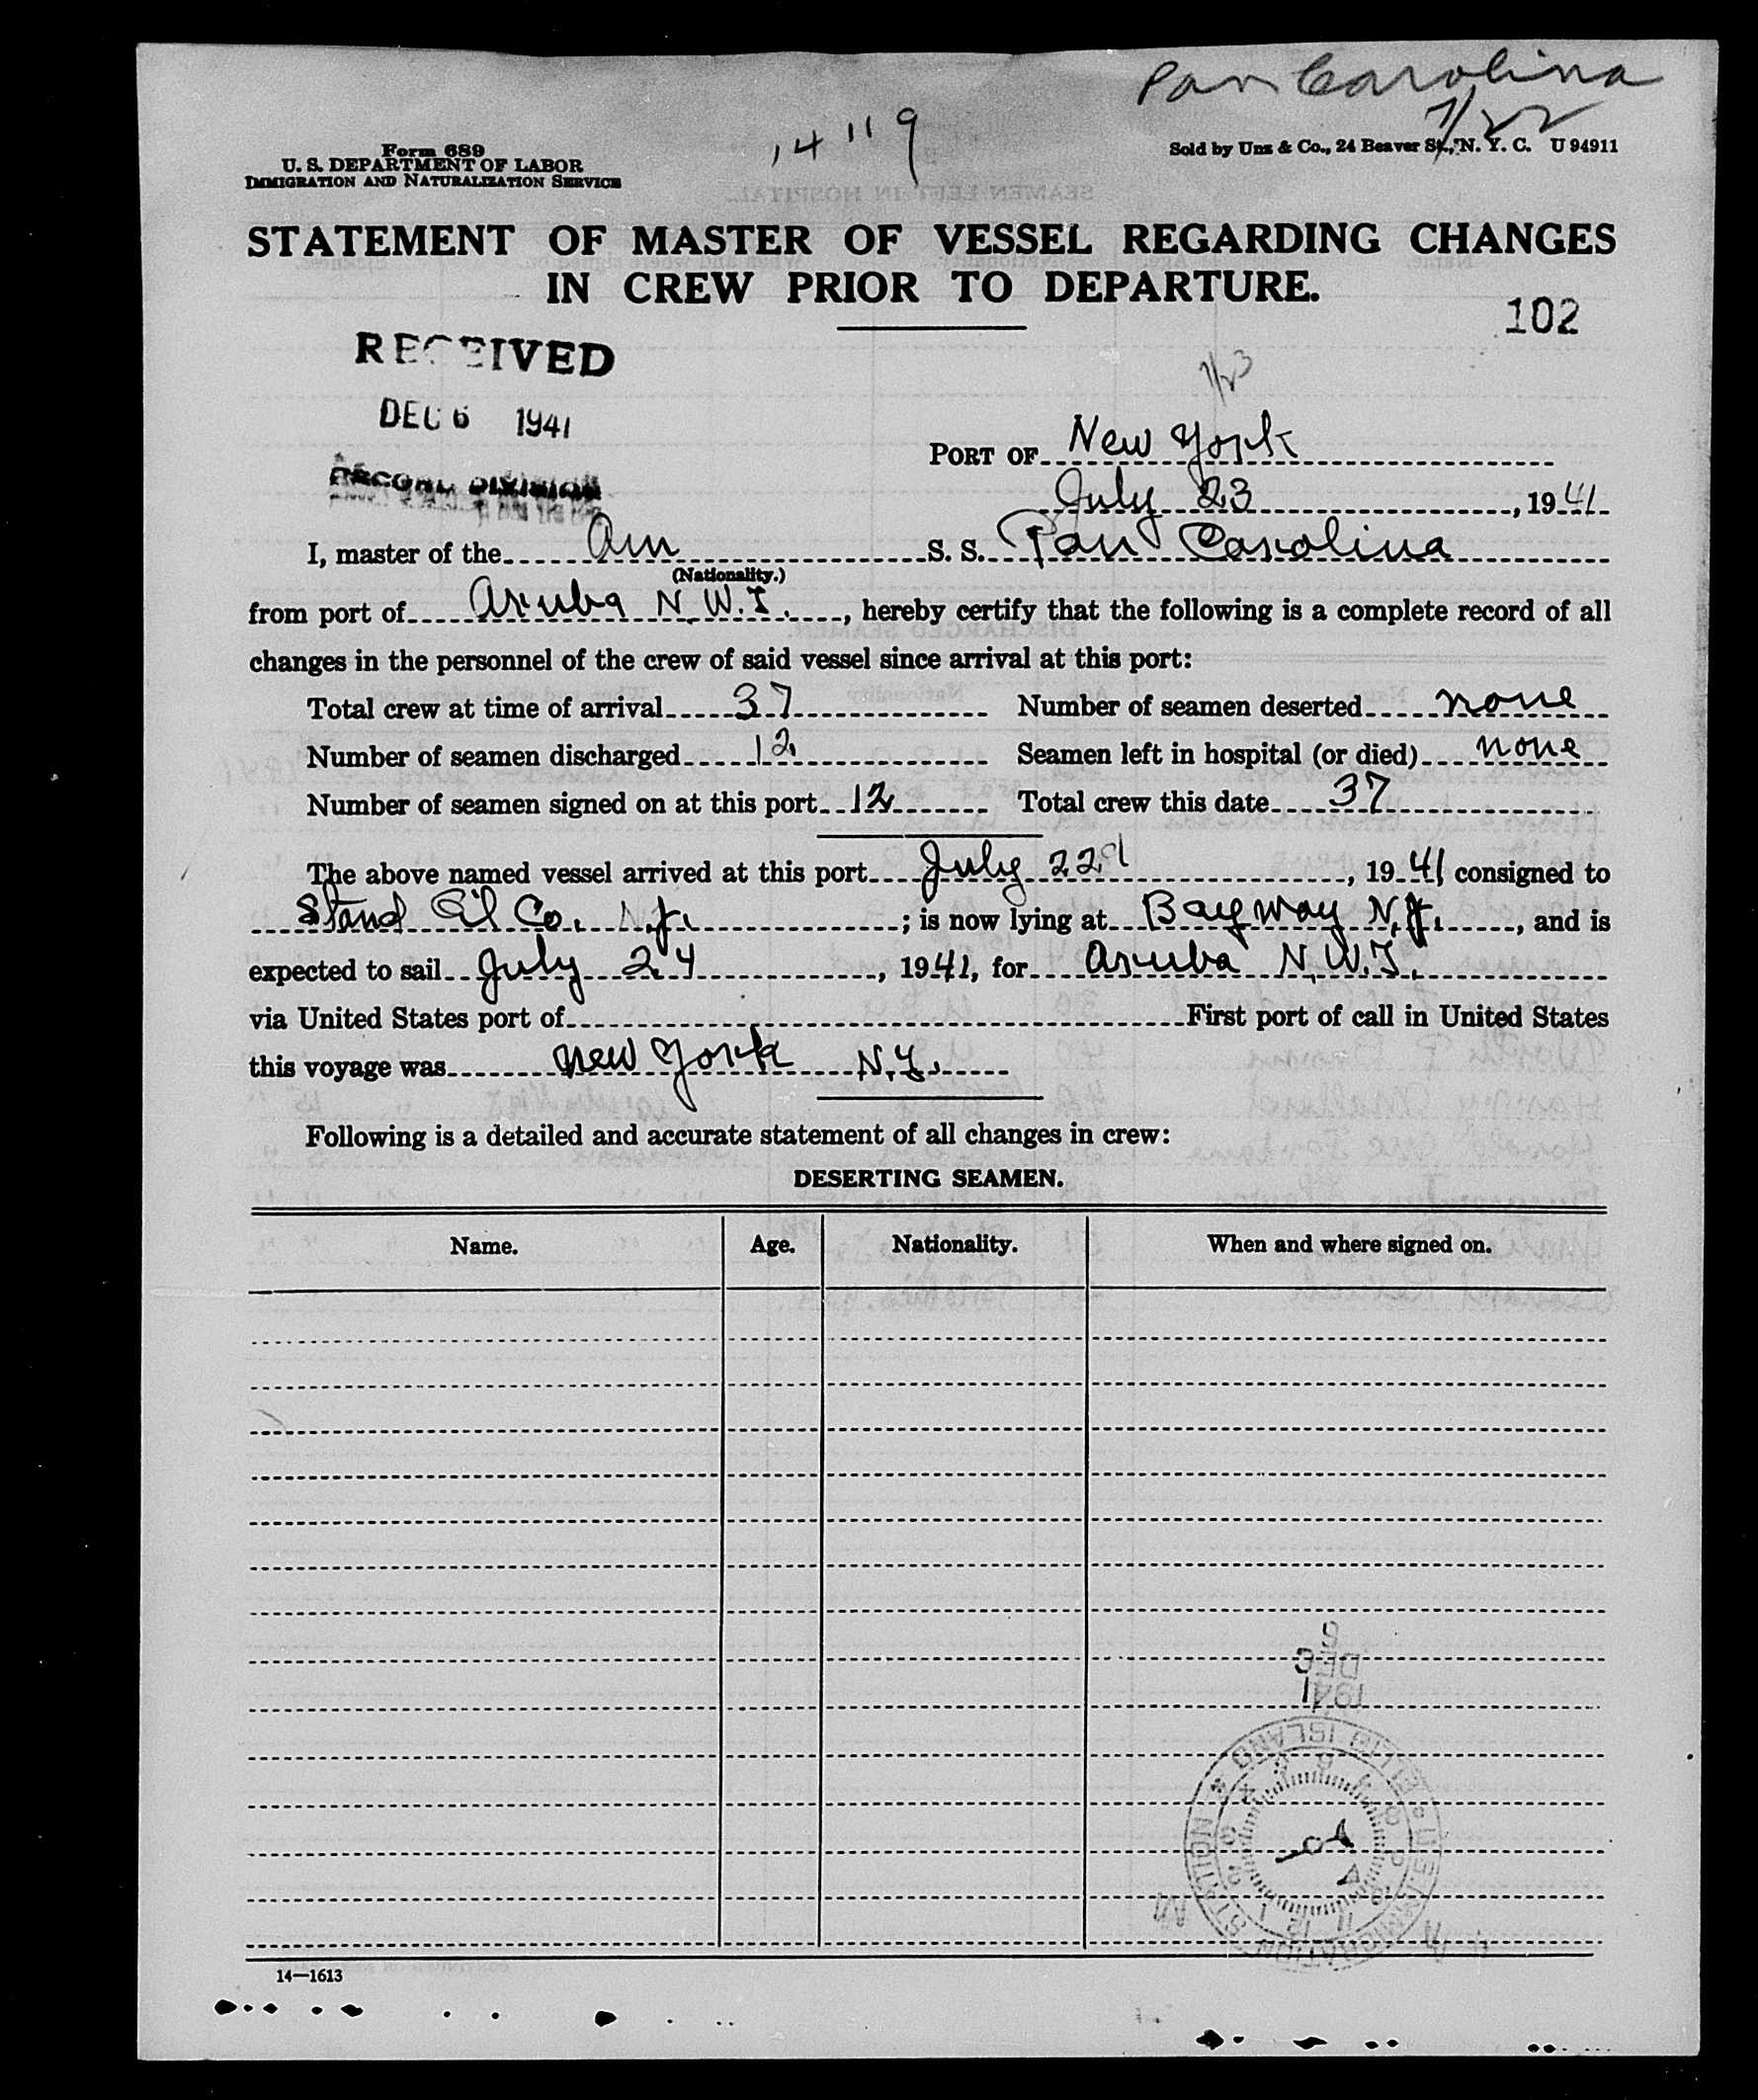 Pan Carolina
7/22
14119
Form 689
U. S. DEPARTMENT OF LABOR
IMMIGRATION AND NATURALIZATION SERVICE
Sold by Unz & Co., 24 Beaver St., N. Y. C. U 94911
STATEMENT OF MASTER OF VESSEL REGARDING CHANGES
IN CREW PRIOR TO DEPARTURE.
102
RECEIVED
DEC 6 1941
RECORD DIVISION
7/23
PORT OF New York
July 23, 1941
I, master of the Am S. S. Pan Carolina
(Nationality.)
from port of Aruba N.W.I., hereby certify that the following is a complete record of all
changes in the personnel of the crew of said vessel since arrival at this port:
Total crew at time of arrival 37 Number of seamen deserted none
Number of seamen discharged 12 Seamen left in hospital (or died) none
Number of seamen signed on at this port 12 Total crew this date 37
The above named vessel arrived at this port July 22d, 1941 consigned to
Stand Oil Co. N.J.; is now lying at Bayway N.J., and is
expected to sail July 24, 1941, for Aruba N.W.I.
via United States port of First port of call in United States
this voyage was New York N.Y.
Following is a detailed and accurate statement of all changes in crew:
DESERTING SEAMEN.
Name. Age. Nationality. When and where signed on.
14—1613